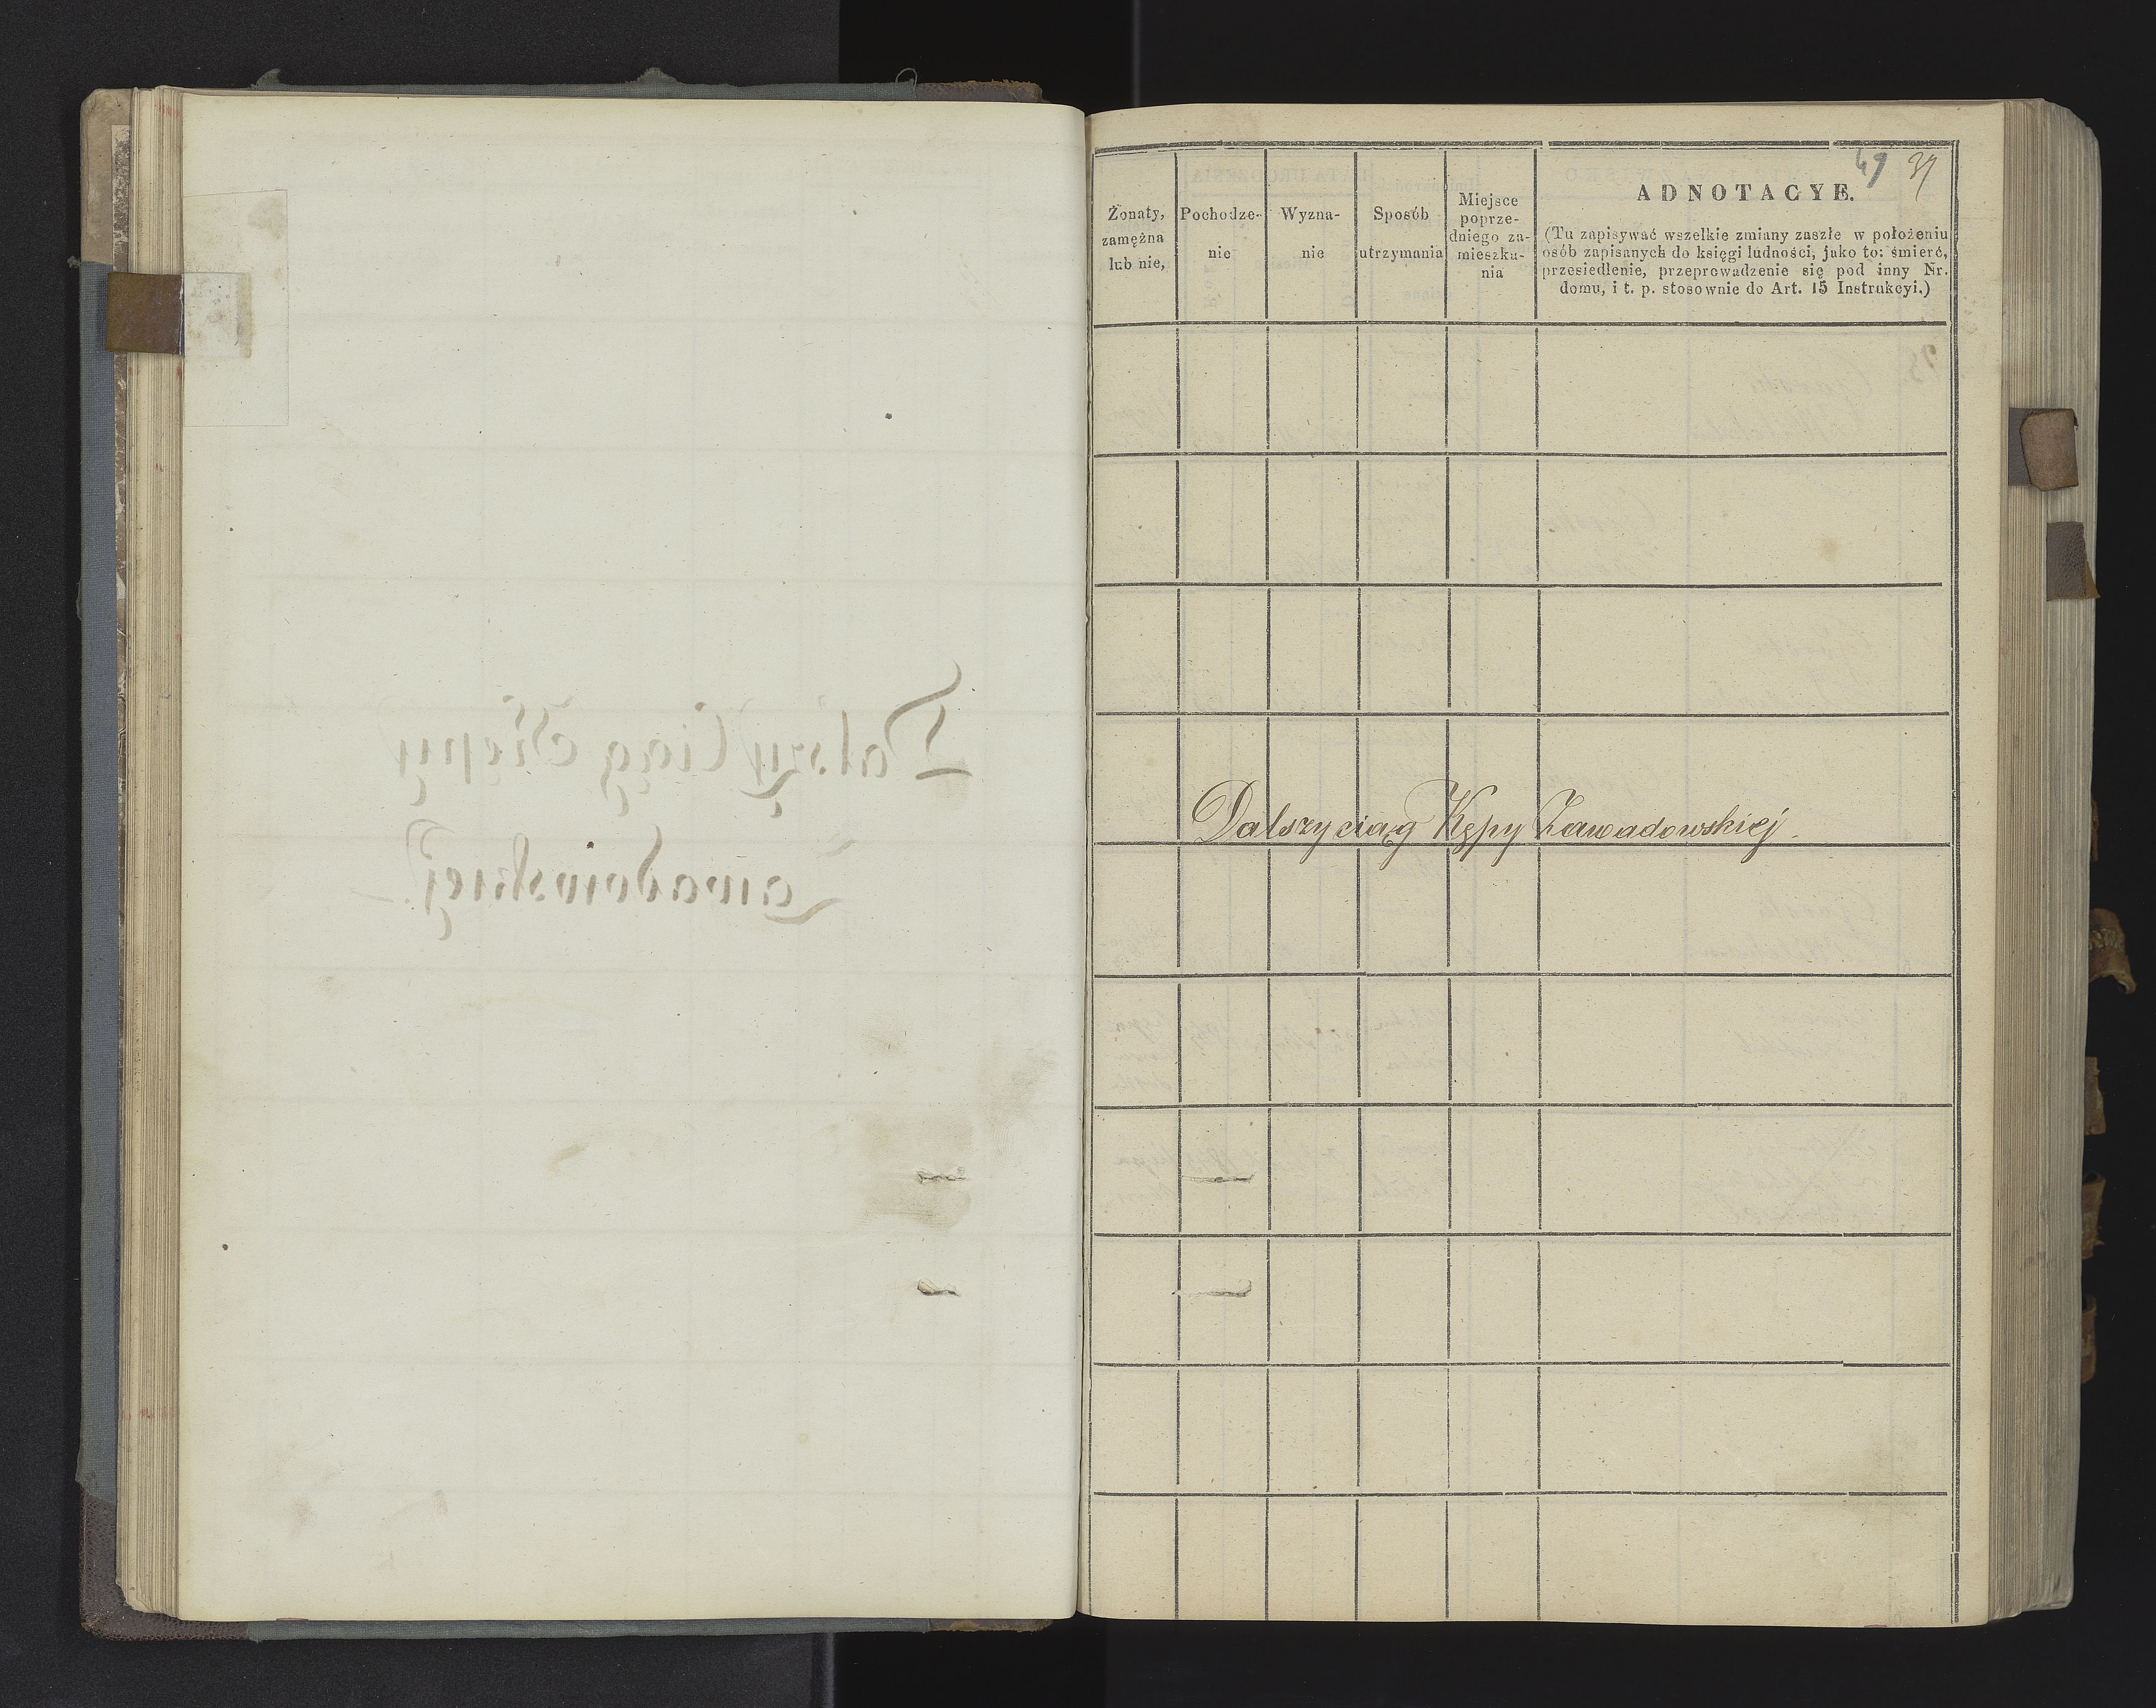 Dalszy Ciąg Kępy
Zawadowskiej.
49 37
Żonaty,
zamężna
lub nie,
Pochodze-
nie
Wyzna-
nie
Sposób
utrzymania
Miejsce
poprze-
dniego za-
mieszka-
nia
ADNOTACYE.
(Tu zapisywać wszelkie zmiany zaszłe w położeniu
osób zapisanych do księgi ludności, jako to: śmierć,
przesiedlenie, przeprowadzenie się pod inny Nr.
domu, i t. p. stosownie do Art. 15 Instrukcyi.)
Dalszy ciąg Kępy Zawadowskiej.